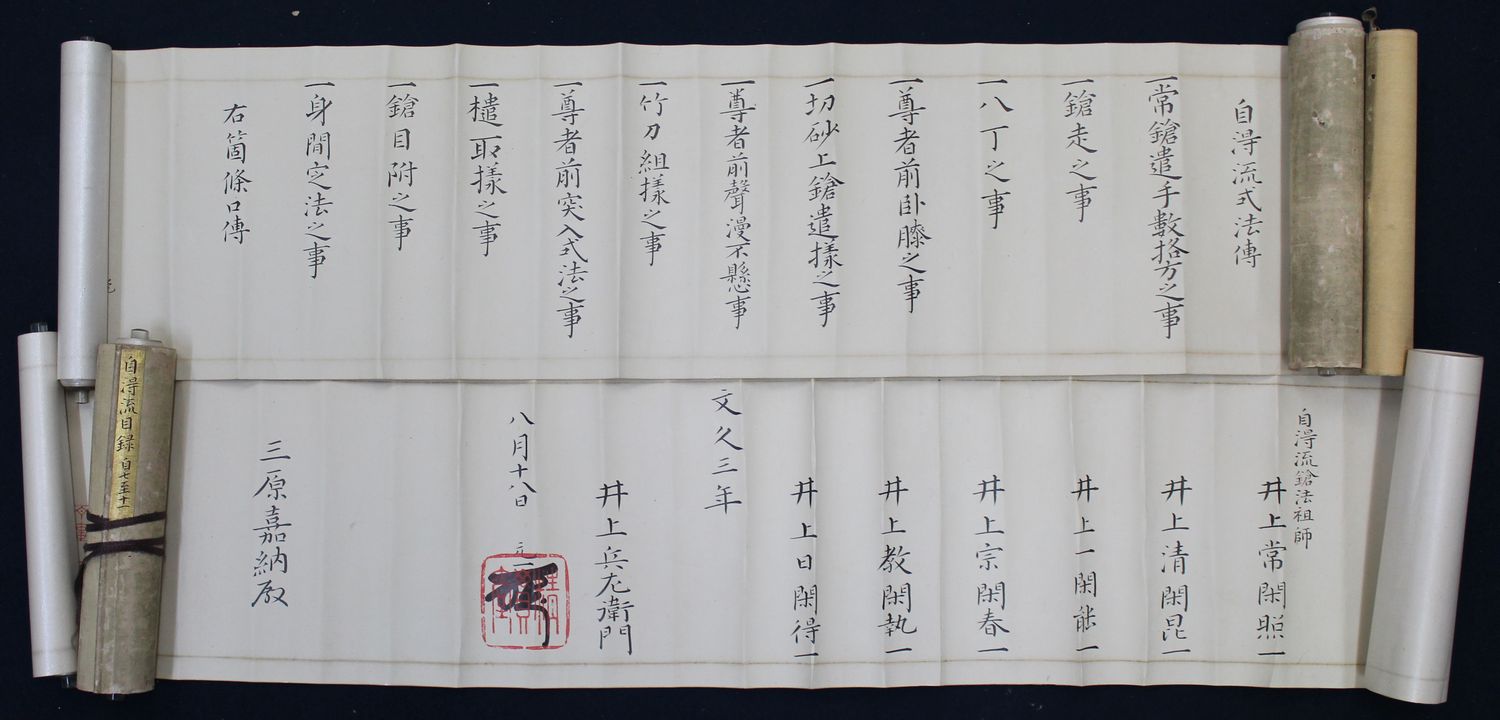 自得流式法傳
一常鎗遣手數挌方之事
一鎗走之事
一八丁之事
一尊者前卧膝之事
一切砂上鎗遣様之事
一尊者前聲漫不懸事
一竹刀組様之事
一尊者前突入式法之事
一樁取様之事
一鎗目附之事
一身間之法之事
右箇條口傳
自得流鎗法祖師
井上常閑照一
井上清閑昆一
井上一閑能一
井上宗閑春一
井上教閑執一
井上日閑得一
文久三年
井上兵左衛門
八月十八日
三原嘉納殿
自得流目録 自七至十一